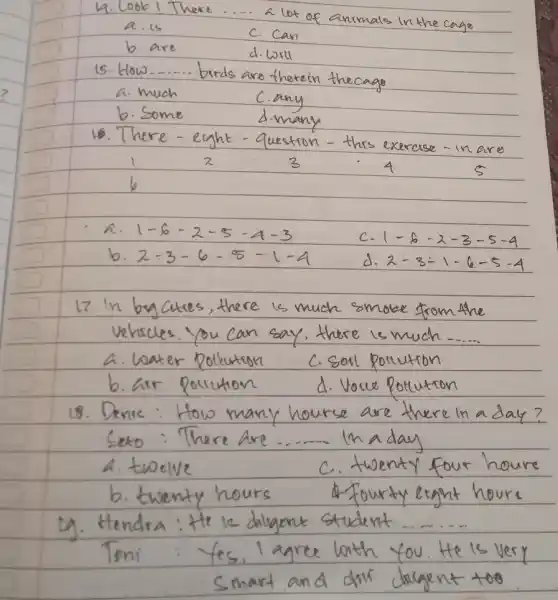 14. Look ! There ..... a lot of animals in the cage
a. is c. can
b are d. will
15. How ....... birds are therein the cage
a. much c. any
b. Some d. many
16. There - eight - question - this exercise - in are
1 2 3 4 5
6
a. 1-6-2-5-4-3 c. 1-6-2-3-5-4
b. 2-3-6-5-1-4 d. 2-3-1-6-5-4
17 In big cities, there is much smoke from the
vehicles. You can say, there is much ......
a. water Pollution c. soil pollution
b. air Pollution d. Voice Pollution
18. Denic : How many hourse are there in a day?
Seto : There are ...... in a day
a. twelve c. twenty four houre
b. twenty hours d fourty eight houre
19. Hendra : He is diligent student .......
Toni : Yes, I agree with you. He is very
Smart and too